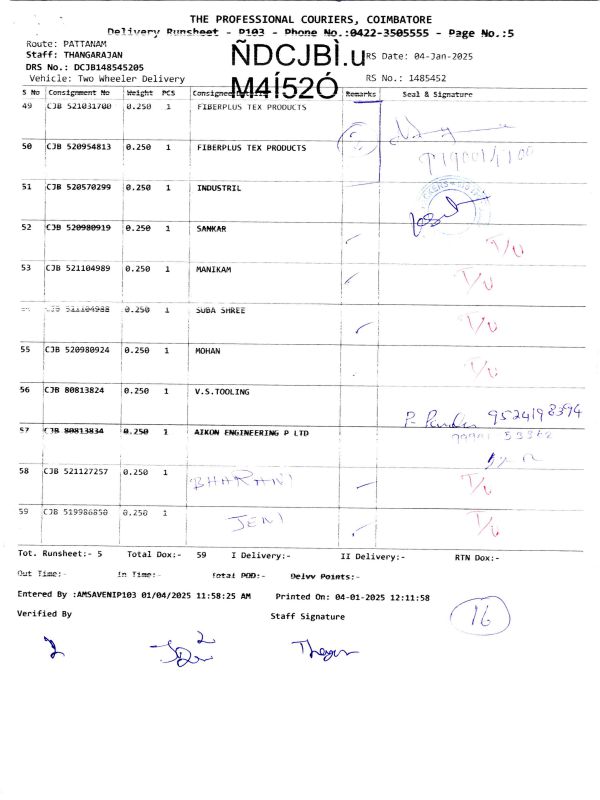 THE PROFESSIONAL COURIERS, COIMBATORE
Delivery Runsheet - P103 - Phone No.:0422-3505555 - Page No.:5
Route: PATTANAM
ÑDCJBÌ.u
Staff: THANGARAJAN
RS Date: 04-Jan-2025
DRS No.: DCJB148545205
Vehicle: Two Wheeler Delivery
M4Í52Ó
RS No.: 1485452
S No Consignment No Weight PCS Consignee Details Remarks Seal & Signature
49 CJB 521031700 0.250 1 FIBERPLUS TEX PRODUCTS
50 CJB 520954813 0.250 1 FIBERPLUS TEX PRODUCTS
51 CJB 520570299 0.250 1 INDUSTRIL
52 CJB 520980919 0.250 1 SANKAR T/U
53 CJB 521104989 0.250 1 MANIKAM T/U
CJB 521104988 0.250 1 SUBA SHREE T/U
55 CJB 520980924 0.250 1 MOHAN T/U
56 CJB 80813824 0.250 1 V.S.TOOLING
9524198394
57 CJB 80813834 0.250 1 AIKON ENGINEERING P LTD
58 CJB 521127257 0.250 1 BHARANI T/U
59 CJB 519986850 0.250 1 JENI T/U
Tot. Runsheet:- 5 Total Dox:- 59 I Delivery:- II Delivery:- RTN Dox:-
Out Time:- In Time:- Total POD:- Delvv Points:-
Entered By :AMSAVENIP103 01/04/2025 11:58:25 AM Printed On: 04-01-2025 12:11:58
Verified By Staff Signature
16